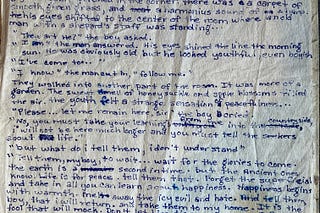 in the corner, there was a carpet of
smooth green grass, and a harmonious sound of
his eyes shifted to the center of the room where an old
man with a shepard's staff was standing...
" Then art He?" the boy asked.
" I am" the man answered. His eyes shined like the morning
He was obviously old but he looked youthful, even boyish
" I've come to..."
" I know" the man cut in, " follow me."
They walked into another part of the room. It was more of a
garden. The sweet smell of honeysuckle and apple blossoms filled
the air. the youth felt a strange sensation of peacefulness...
" Please... let me remain here sir" the boy
No, you must take your learning from the countryside,
I will not be here much longer and you must tell the
about life."
" but what do I tell them, I don't understand"
Tell them, my boy, to wait... wait for the glories to come.
the earth is a second in time, but the Ancient one
know life is for peace. Tell them, that. Forget the superficial
and take in all you can learn through happiness. Happiness begins
with warmth, the icy cold side and hate. tell them,
boy, that I will return, and take them to my home. It is a
that will much.